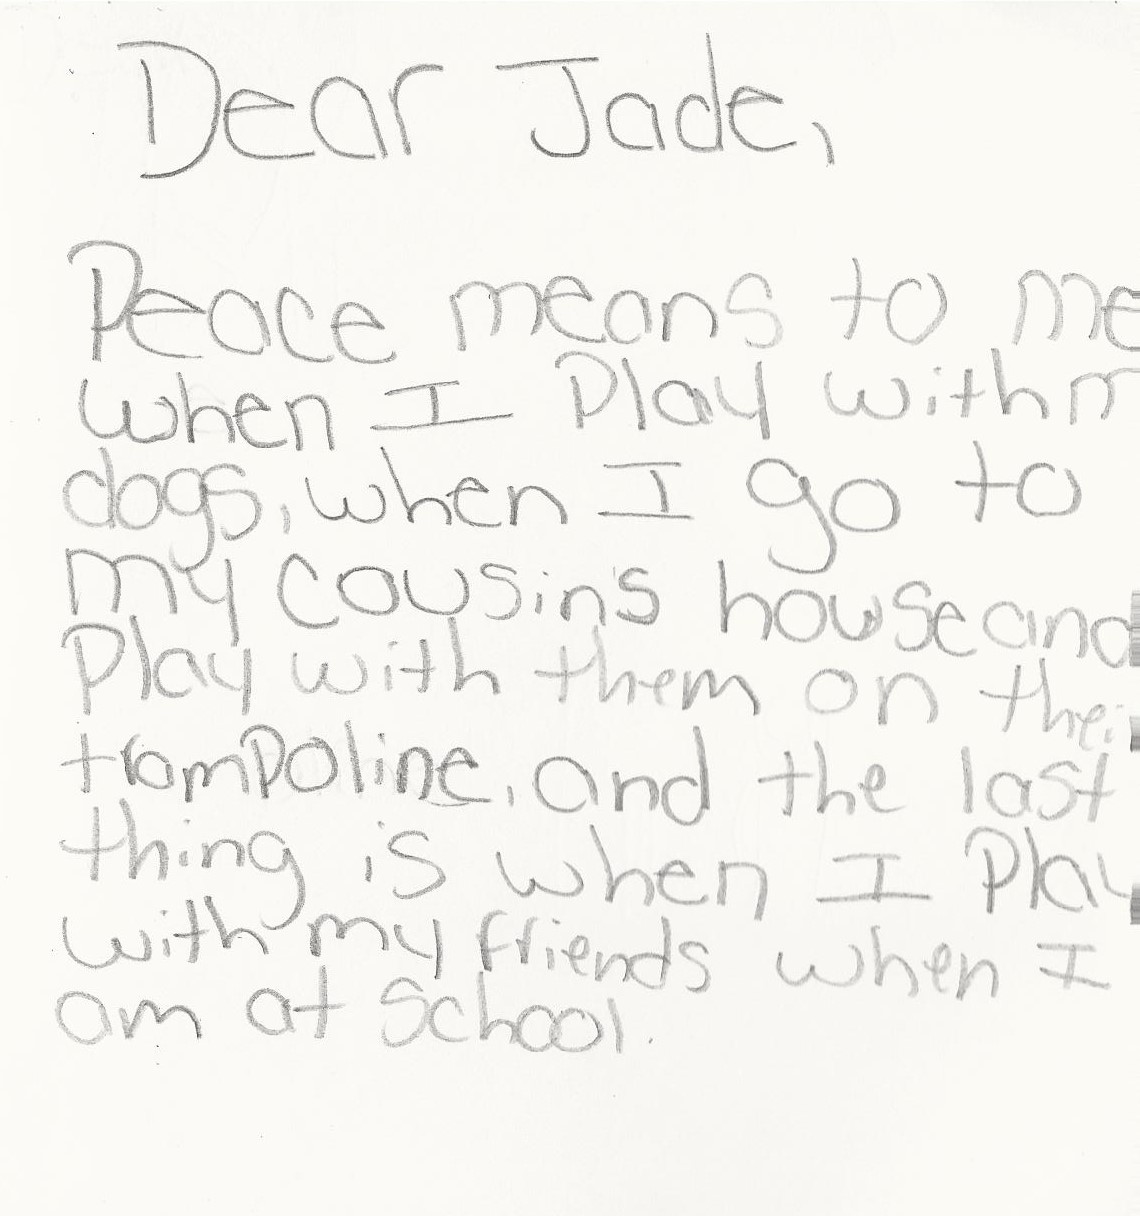 Dear Jade,
Peace means to me
when I Play with m
dogs, when I go to
my cousin's house and
Play with them on thei
trampoline, and the last
thing is when I Play
with my friends when I
am at School.